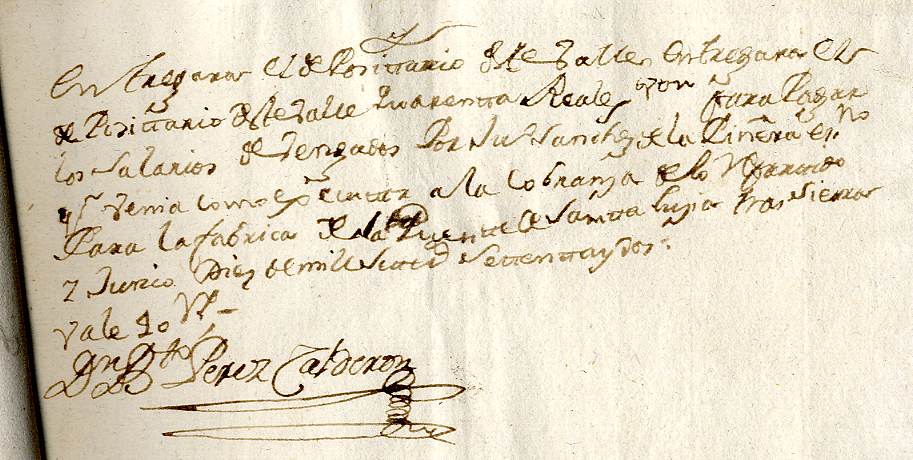 Entregara el depositario deste Valle Entregara el
depositario deste Valle quarenta Reales von para Pagar
los Salarios devengados Por Juº Sanchez de la Piñera esnº
qe venia como executor a la cobranza de lo
Para la fabrica de la Puente de Santa Luzia Tras sierra
y Junio Diez de mill setezs setenta y dos.
Vale 40 Rs
Dn Perez Calderon